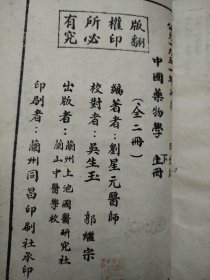 版權所有
翻印必究
中國薬物學
(全二冊)
編著者：劉星元醫師
校對者：吳生玉 郭繼宗
出版者：蘭州上池國醫研究社
蘭山中醫學校
印刷者：蘭州同昌印刷社承印